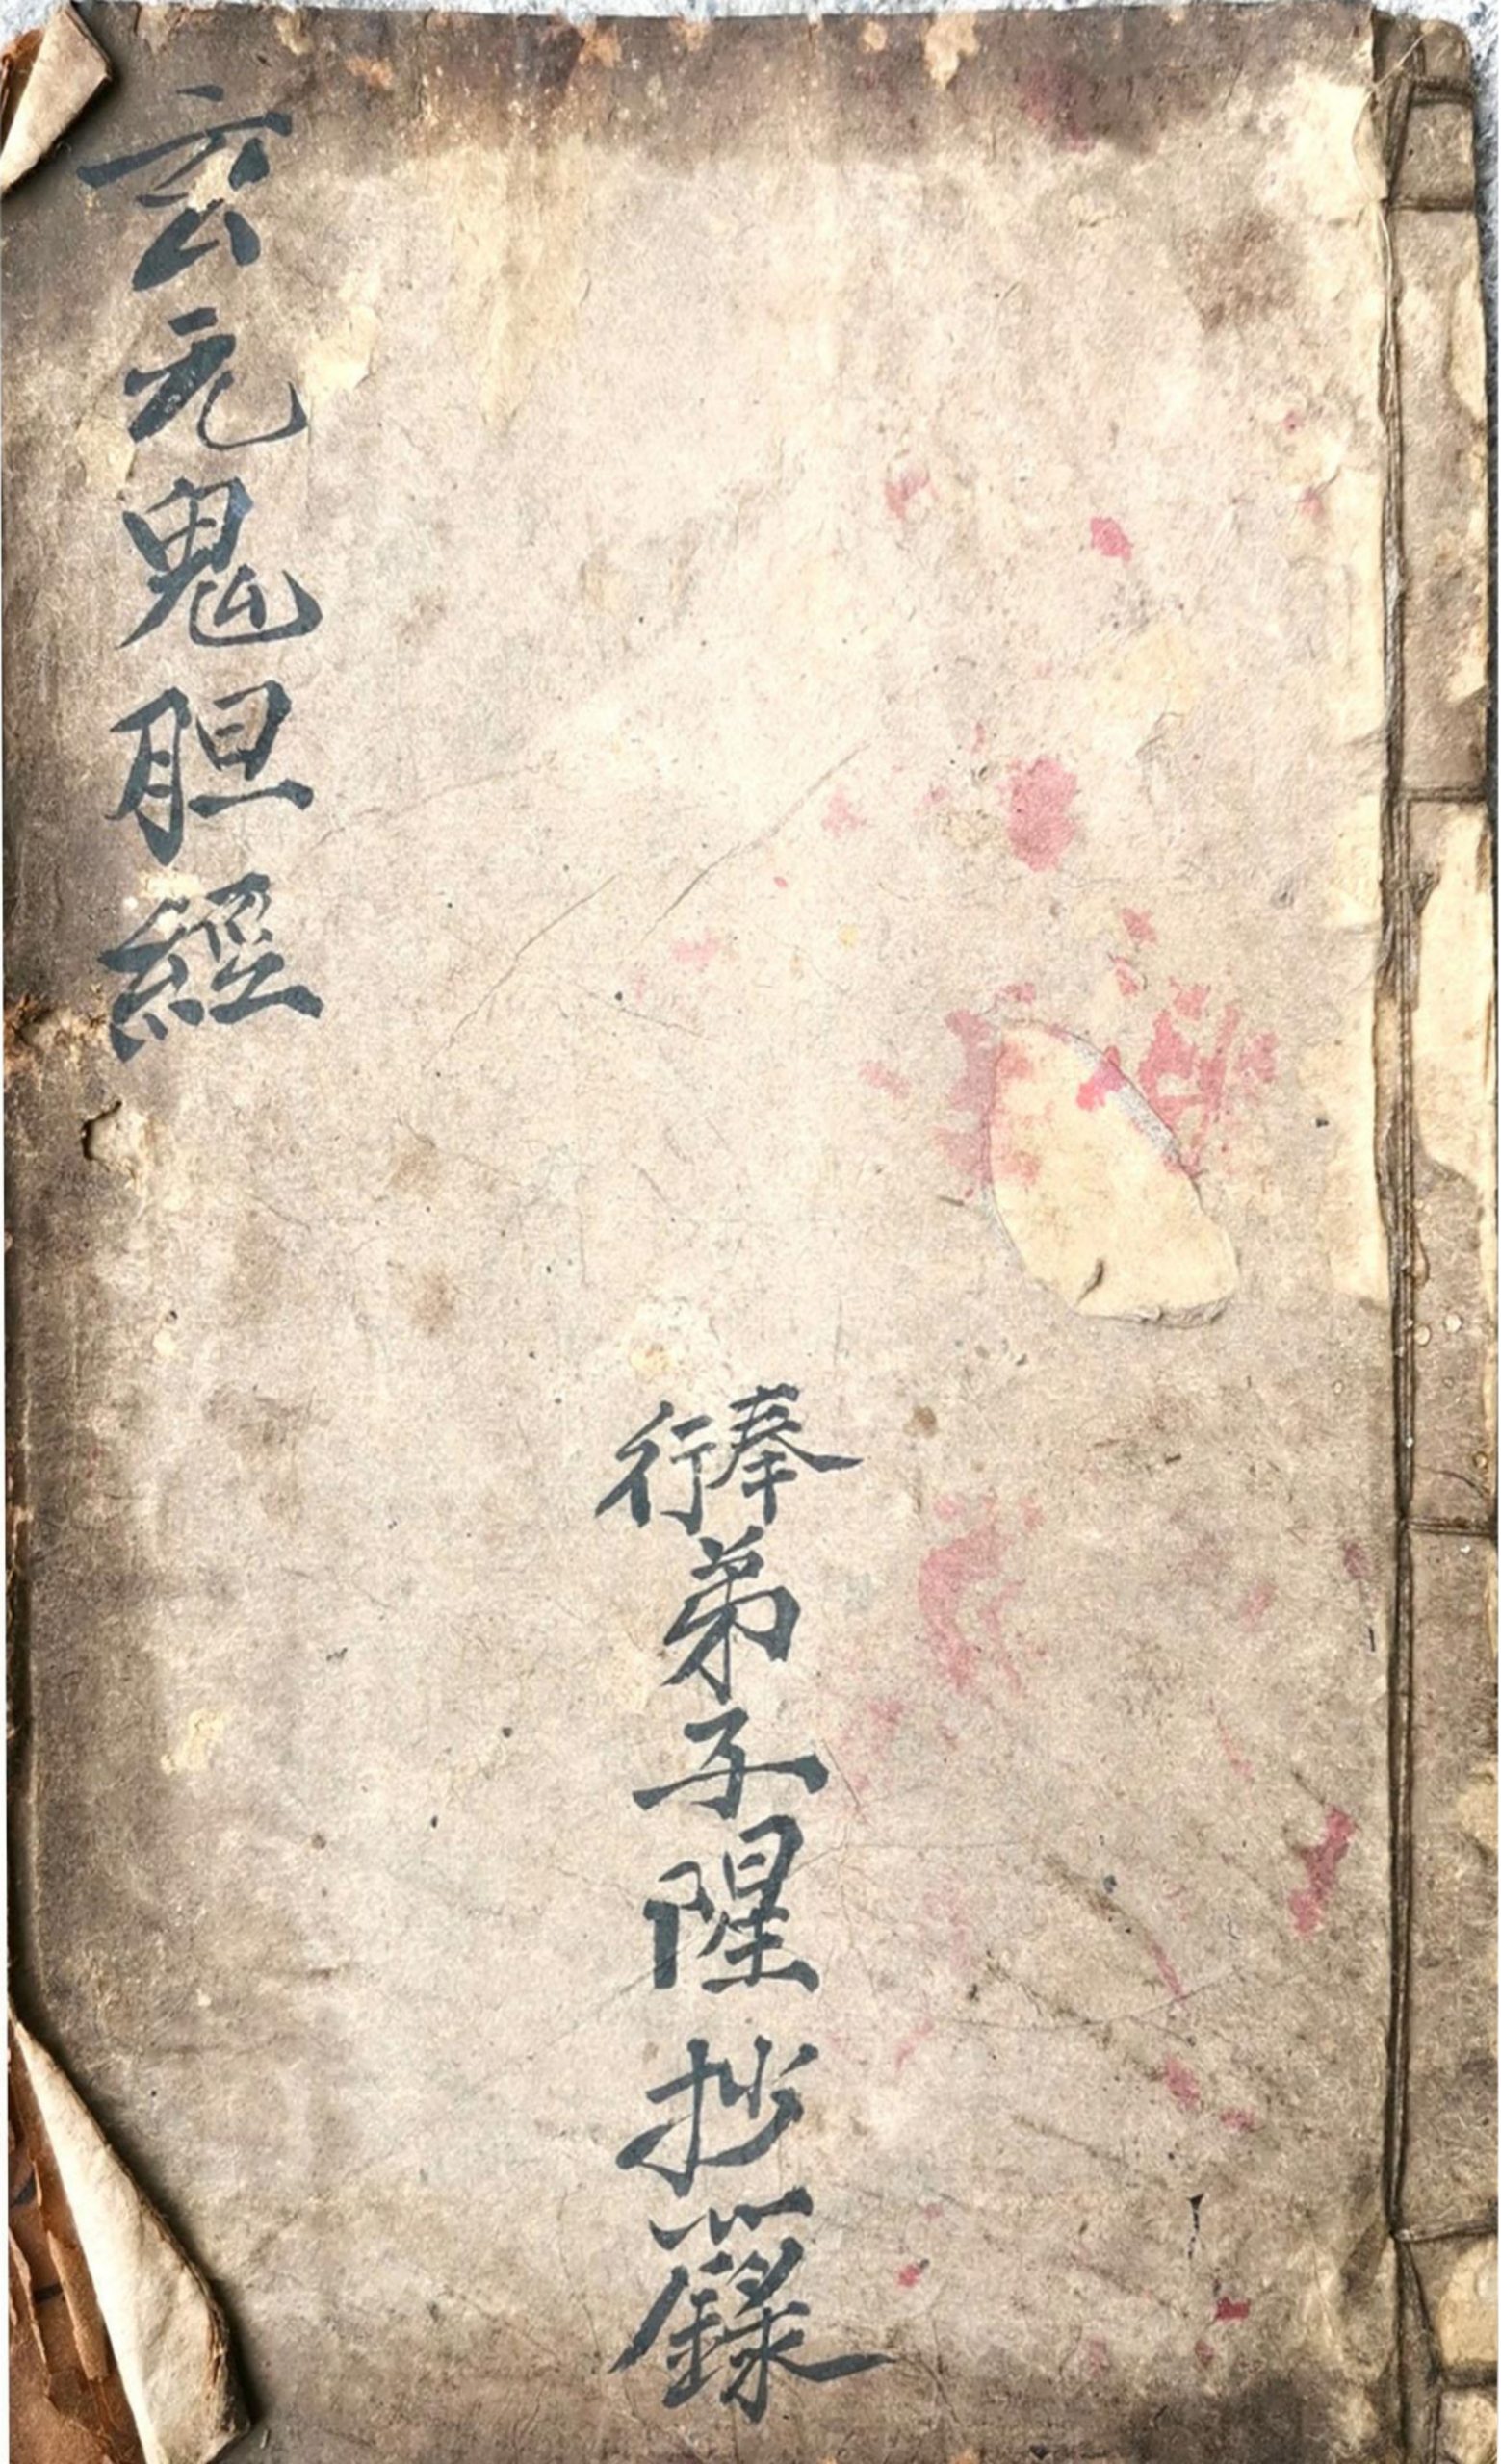 玄元鬼胆經
奉行弟子抄籙